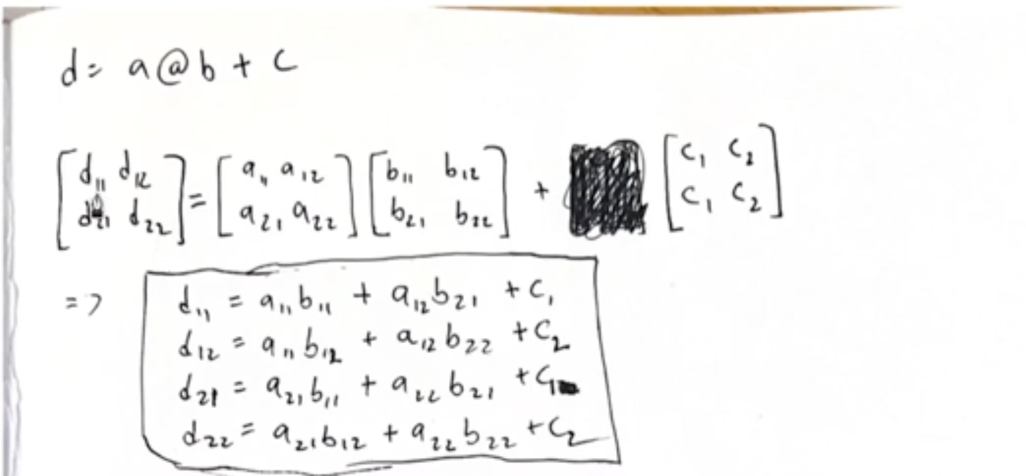 d = a @ b + c
[d₁₁ d₁₂] = [a₁₁ a₁₂] [b₁₁ b₁₂] + [c₁ c₂]
[d₂₁ d₂₂] [a₂₁ a₂₂] [b₂₁ b₂₂] [c₁ c₂]
=> d₁₁ = a₁₁b₁₁ + a₁₂b₂₁ + c₁
d₁₂ = a₁₁b₁₂ + a₁₂b₂₂ + c₂
d₂₁ = a₂₁b₁₁ + a₂₂b₂₁ + c₁
d₂₂ = a₂₁b₁₂ + a₂₂b₂₂ + c₂